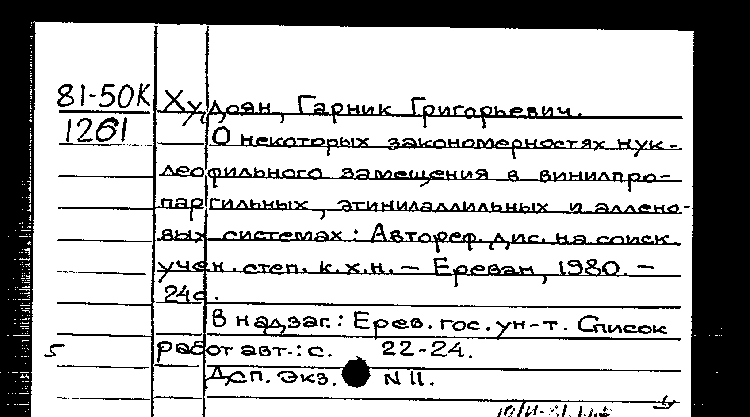 81-50К
1261
Худоян, Гарник Григорьевич.
О некоторых закономерностях нук-
леофильного замещения в винилпро-
паргильных, этинилаллильных и аллено-
вых системах: Автореф. дис. на соиск.
учен. степ. к.х.н. — Ереван, 1980. —
24с.
В надзаг.: Ерев. гос. ун-т. Список
работ авт.: с. 22-24.
Дсп. Экз. N 11.
5